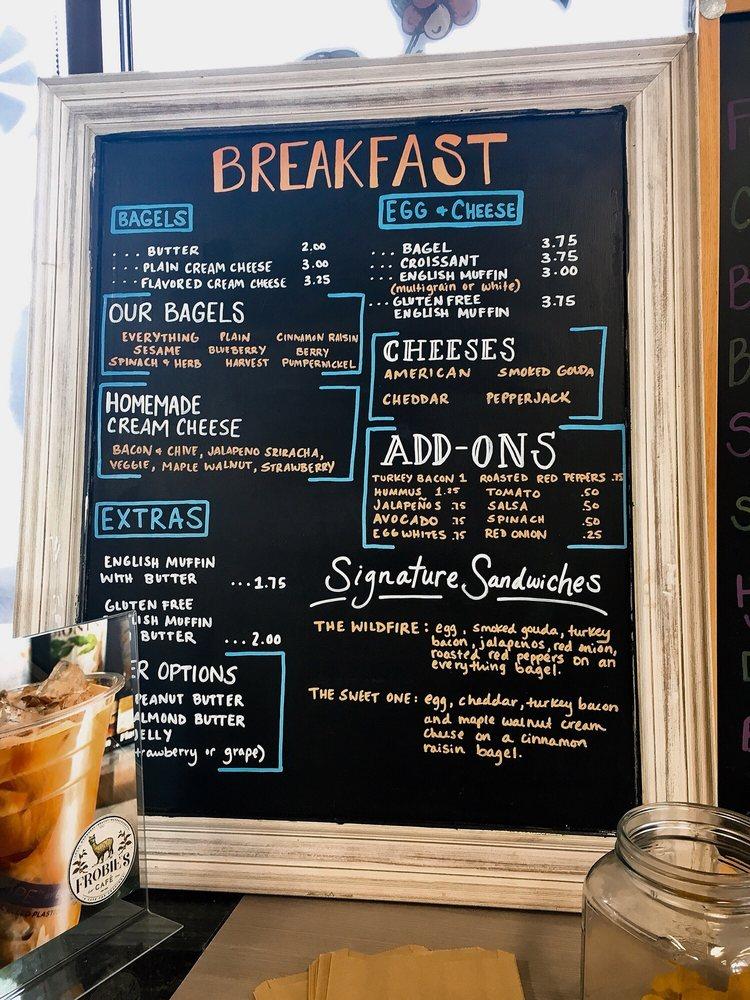 BREAKFAST
BAGELS
... BUTTER 2.00
... PLAIN CREAM CHEESE 3.00
... FLAVORED CREAM CHEESE 3.25
OUR BAGELS
EVERYTHING PLAIN CINNAMON RAISIN
SESAME BLUEBERRY BERRY
SPINACH & HERB HARVEST PUMPERNICKEL
HOMEMADE
CREAM CHEESE
BACON & CHIVE, JALAPENO SRIRACHA,
VEGGIE, MAPLE WALNUT, STRAWBERRY
EXTRAS
ENGLISH MUFFIN
WITH BUTTER ...1.75
GLUTEN FREE
ISH MUFFIN
BUTTER ...2.00
ER OPTIONS
PEANUT BUTTER
ALMOND BUTTER
JELLY
trawberry or grape)
EGG & CHEESE
... BAGEL 3.75
... CROISSANT 3.75
... ENGLISH MUFFIN 3.00
(multigrain or white)
... GLUTEN FREE 3.75
ENGLISH MUFFIN
CHEESES
AMERICAN SMOKED GOUDA
CHEDDAR PEPPERJACK
ADD-ONS
TURKEY BACON 1 ROASTED RED PEPPERS .75
HUMMUS 1.25 TOMATO .50
JALAPEÑOS .75 SALSA .50
AVOCADO .75 SPINACH .50
EGG WHITES .75 RED ONION .25
Signature Sandwiches
THE WILDFIRE: egg, smoked gouda, turkey
bacon, jalapeños, red onion,
roasted red peppers on an
everything bagel.
THE SWEET ONE: egg, cheddar, turkey bacon
and maple walnut cream
cheese on a cinnamon
raisin bagel.
FROBIE'S
CAFÉ